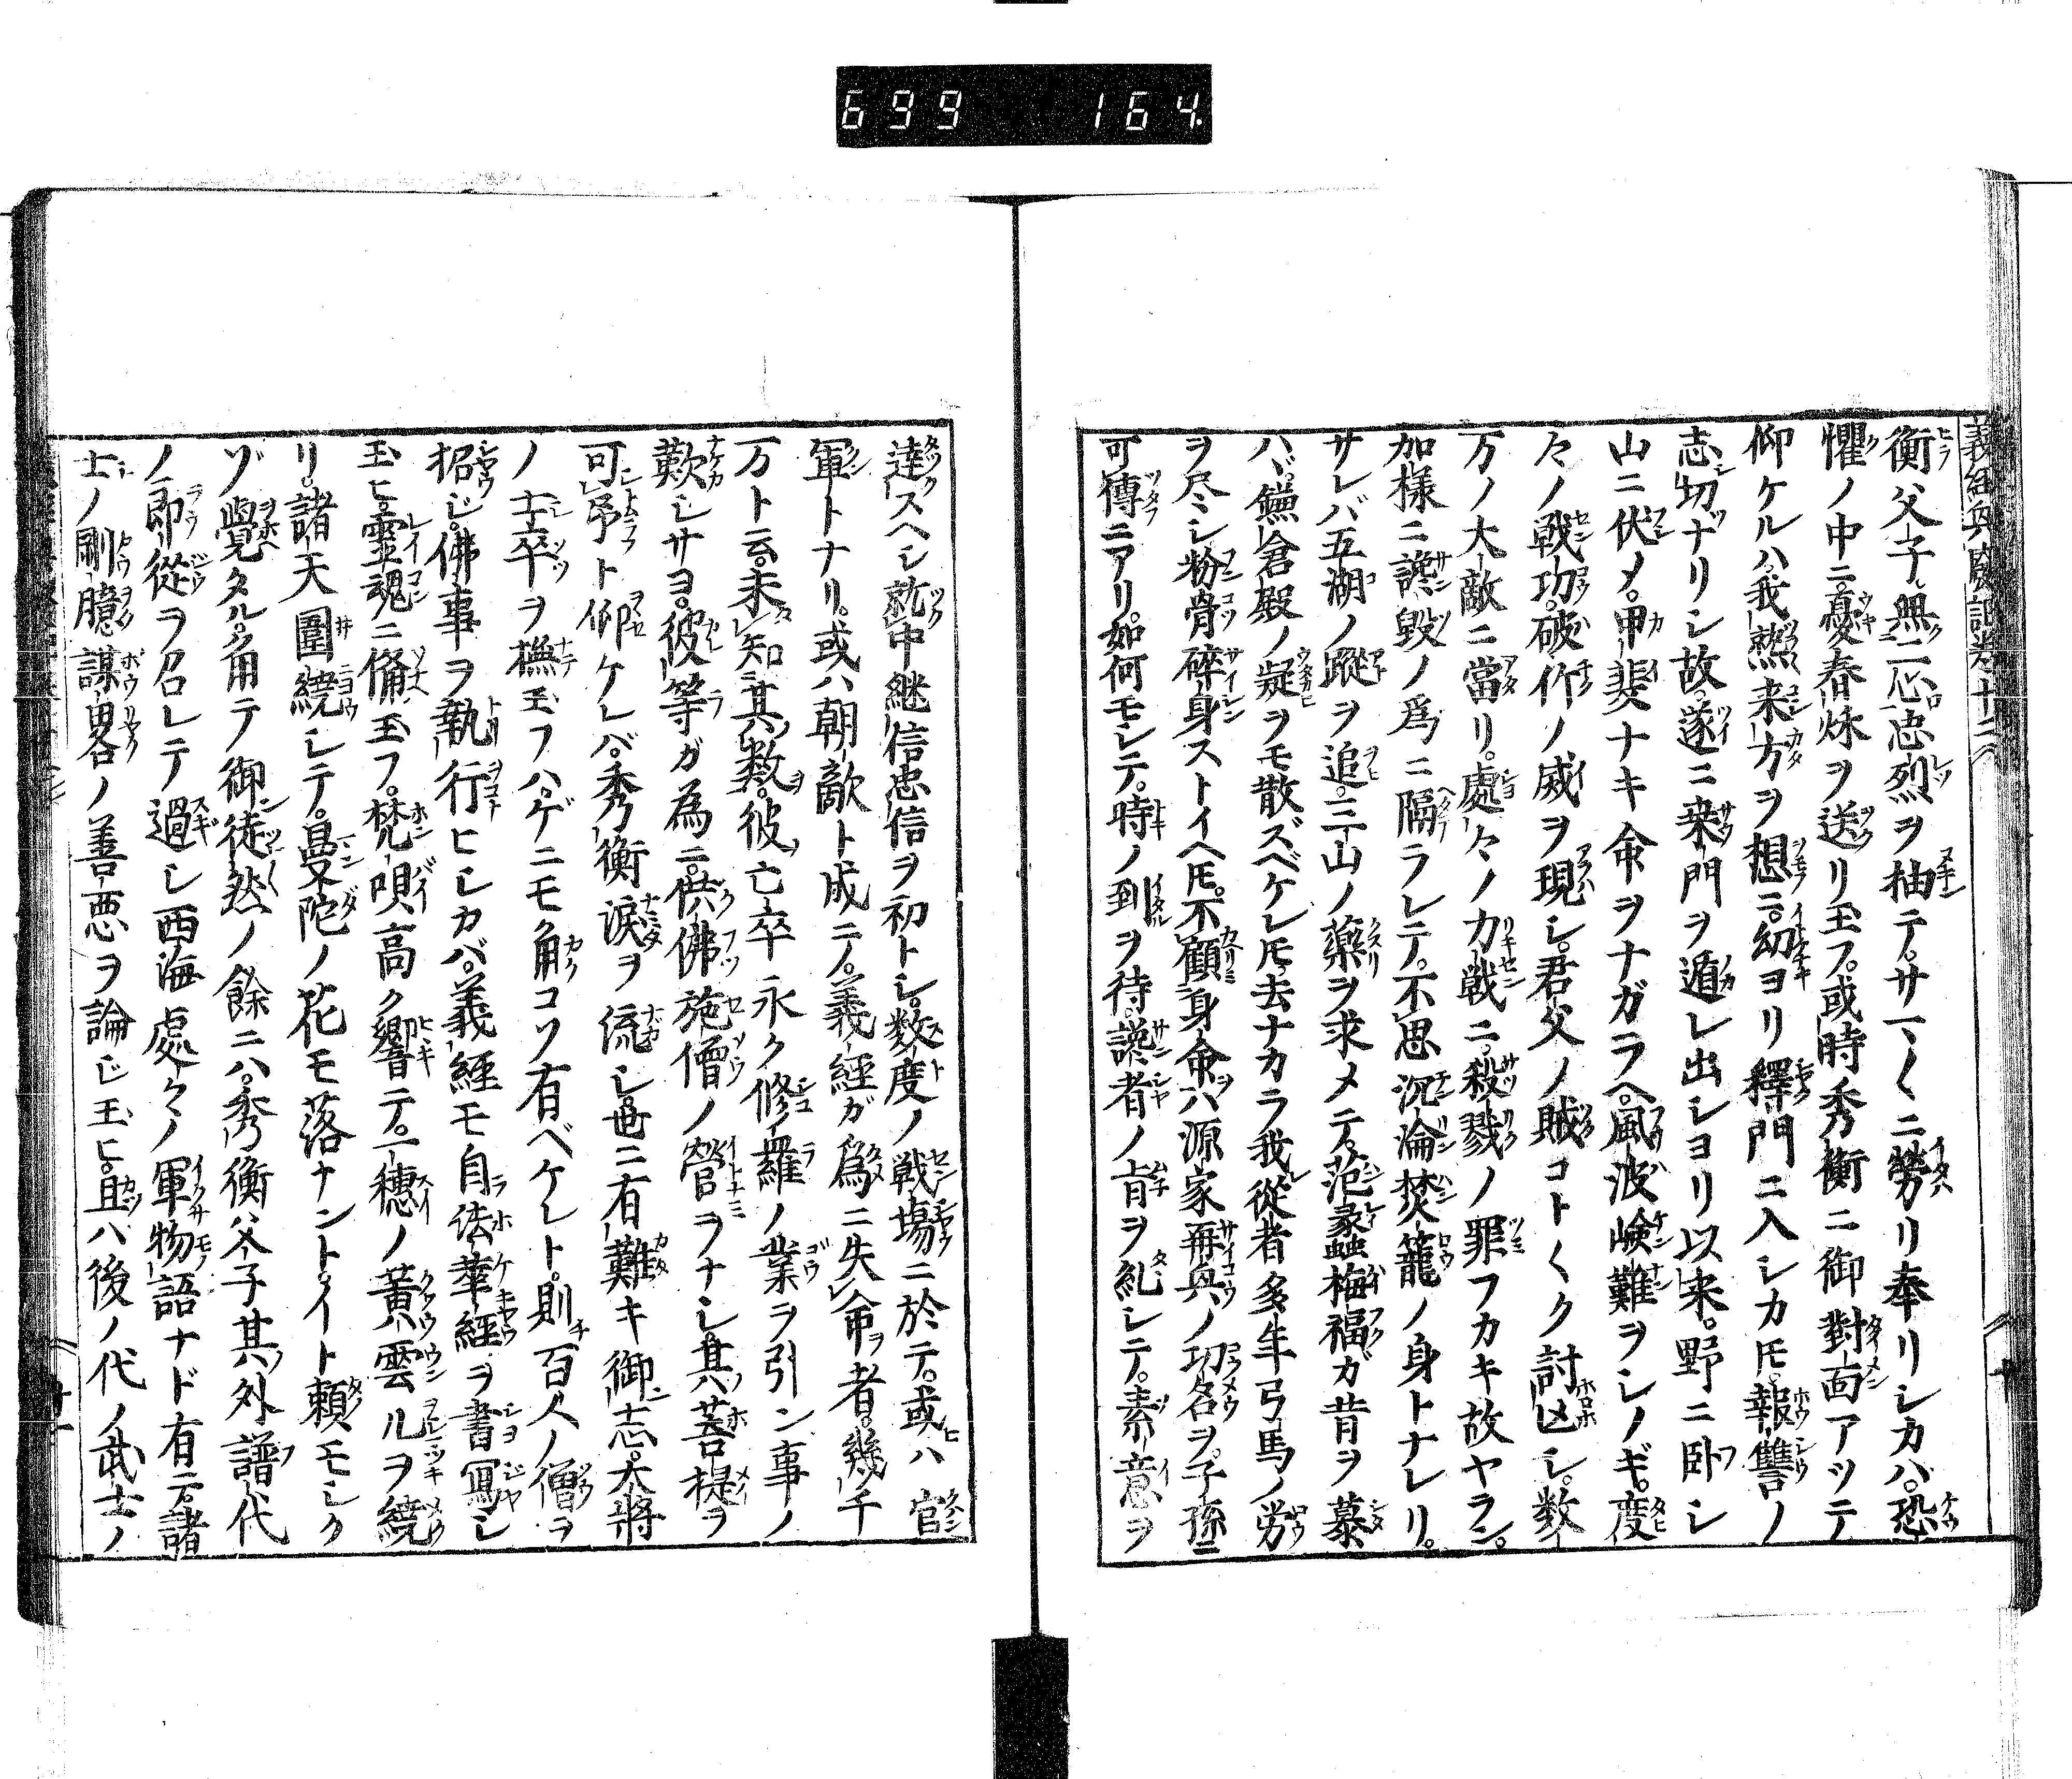 699 164
義經興廢記巻十二
衡父子無二忠烈ヲ抽テサマ〱ニ勞リ奉リシカバ恐
懼ノ中ニ憂春秋ヲ送リ玉フ或時秀衡ニ御對面アツテ
仰ケルハ我熟来方ヲ想ニ幼ヨリ釋門ニ入シカ𪜈報讐ノ
志切ナリシ故遂ニ桒門ヲ遁レ出シヨリ以来野ニ卧シ
山ニ伏メ甲斐ナキ命ヲナガラヘ風波嶮難ヲシノギ度
々ノ戦功破竹ノ威ヲ現シ君父ノ賊コト〱ク討亡シ数
万ノ大敵ニ當リ處々ノ力戦ニ殺戮ノ罪フカキ故ヤラン
加様ニ讒毀ノ爲ニ隔ラレテ不思沉淪樊籠ノ身トナレリ
サレバ五湖ノ蹤ヲ追三山ノ藥ヲ求メテ范蠡梅福ガ昔ヲ慕
ハヾ鎌倉殿ノ疑ヲモ散ズベケレ𪜈去ナカラ我従者多年弓馬ノ労
ヲ尽シ粉骨碎身ストイヘ𪜈不顧身命ハ源家再興ノ功名ヲ子孫ニ
可傳ニアリ如何モシテ時ノ到ヲ待讒者ノ旨ヲ糺シテ素意ヲ
達スヘシ就中継信忠信ヲ初トシ数度ノ戦場ニ於テ或ハ官
軍トナリ或ハ朝敵ト成ニノ義經ガ爲ニ失命者幾千
万ト云未知其数彼亡卒永ク修羅ノ業ヲ引ン事ノ
歎シサヨ彼等ガ為ニ供佛施僧ノ營ヲナシ其菩提ヲ
可弔ト仰ケレバ秀衡涙ヲ流シ世ニ有難キ御志大將
ノ士卒ヲ撫玉フハゲニモ角コソ有ベケレト則百人ノ僧ヲ
招ジ佛事ヲ執行ヒシカバ義經モ自法華經ヲ書冩シ
玉ヒ霊魂ニ備玉フ梵唄高ク響テ一穂ノ黄雲ルヲ繞
リ諸天圍繞シテ曼陀ノ花モ落ナントイト頼モシク
ゾ覺タル角テ御徒然ノ餘ニハ秀衡父子其外譜代
ノ郎従ヲ召レテ過シ西海處々ノ軍物語ナド有テ諸
士ノ剛臆謀畧ノ善悪ヲ論ジ玉ヒ且ハ後ノ代ノ武士ノ